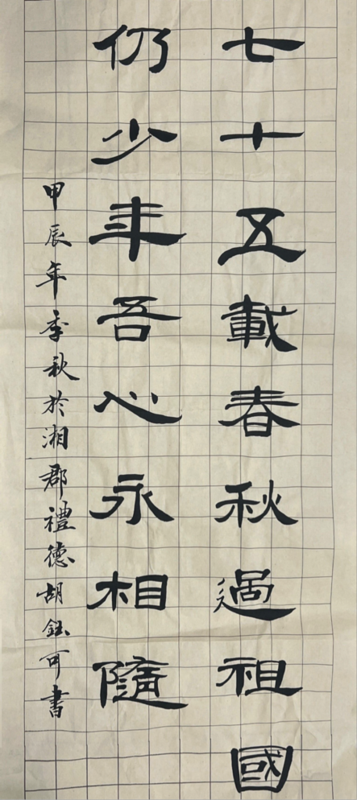 七十五載春秋過祖國
仍少年吾心永相隨
甲辰年季秋於湘郡禮德胡鈺可書